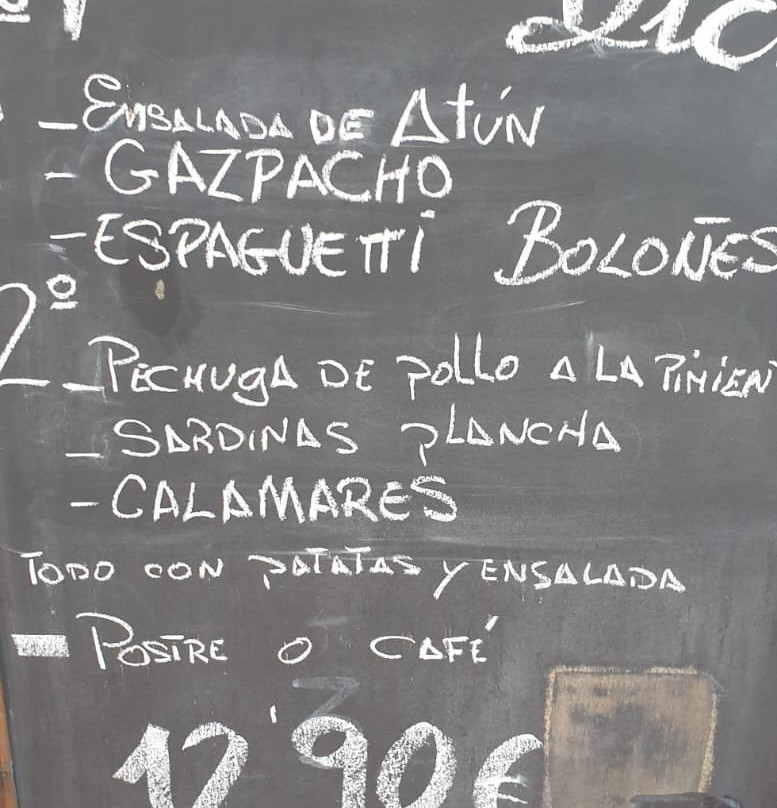 - Ensalada de Atún
- GAZPACHO
- ESPAGUETTi BOLOÑES
2º
- Pechuga de pollo a la Pimien
- SARDINAS PLANCHA
- CALAMARES
Todo con patatas y ensalada
- Postre o café
12'90€